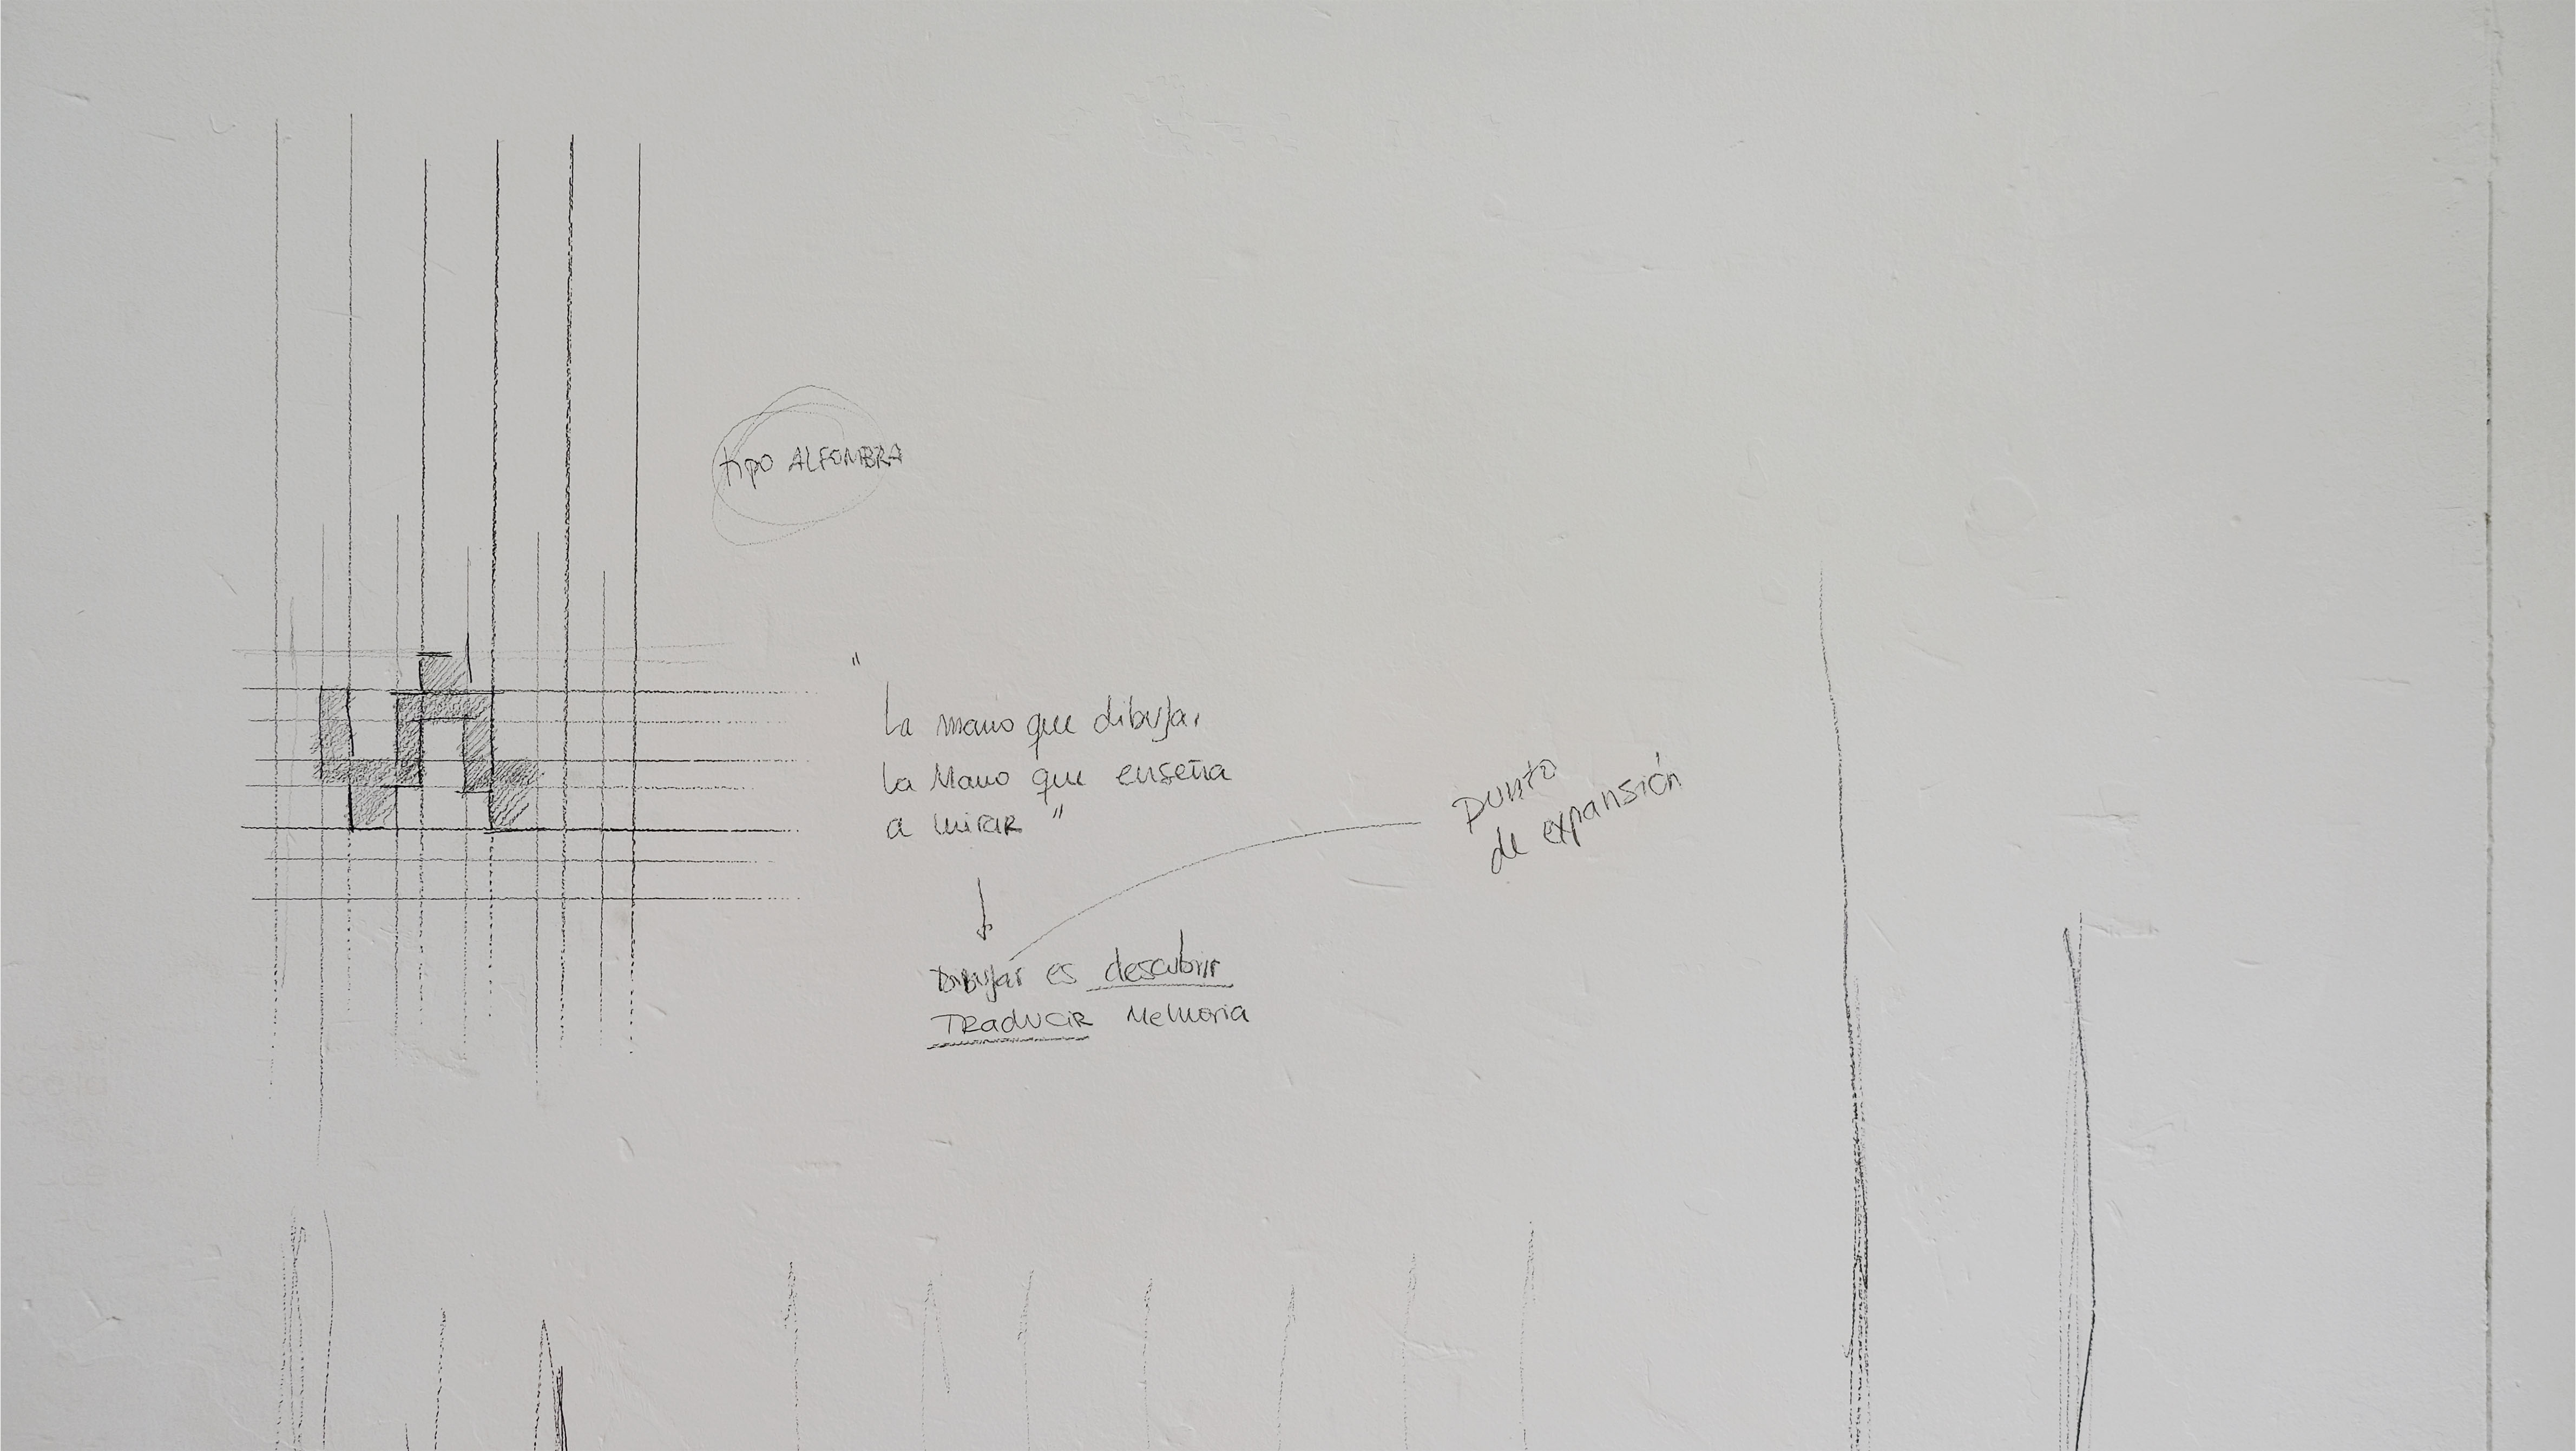 tipo ALFOMBRA
"
La mano que dibuja,
la Mano que enseña
a mirar "
Punto
de expansión
Dibujar es descubrir
TRaducir Memoria